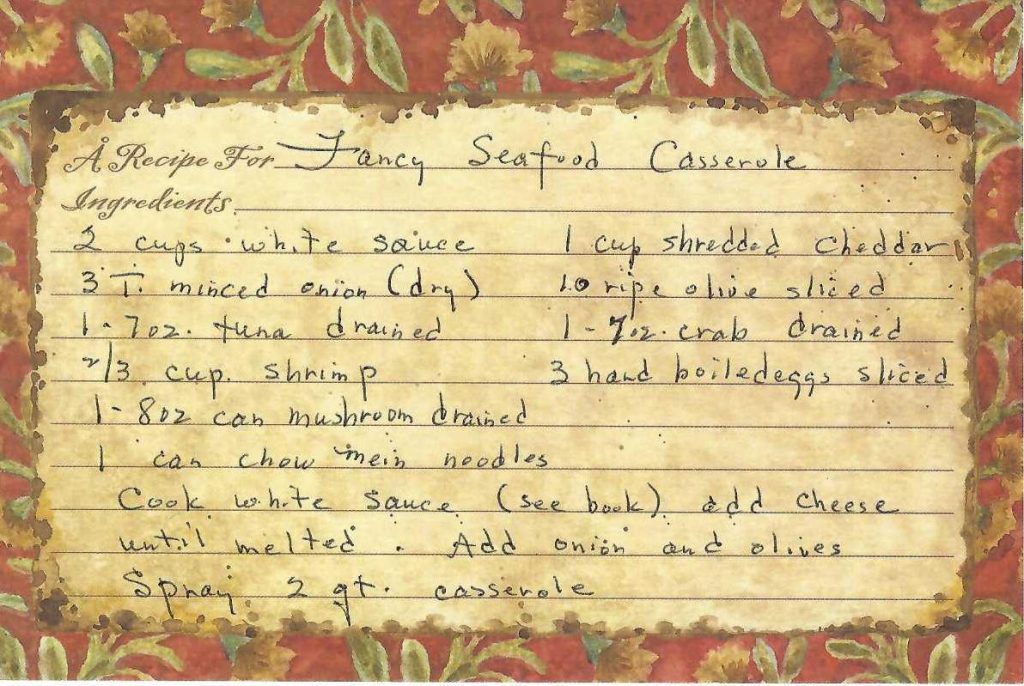 A Recipe For Fancy Seafood Casserole
Ingredients
2 cups white sauce 1 cup shredded cheddar
3 T. minced onion (dry) 10 ripe olive sliced
1-7oz. tuna drained 1-7oz. crab drained
2/3 cup. shrimp 3 hard boiled eggs sliced
1-8oz can mushroom drained
1 can chow mein noodles
Cook white sauce (see book) add cheese
until melted. Add onion and olives
Spray 2 qt. casserole